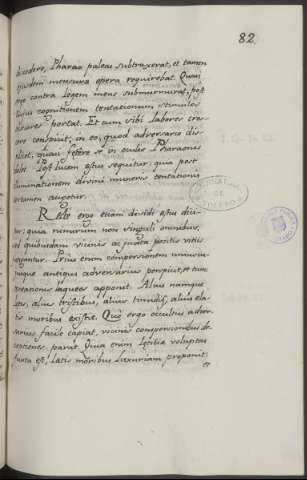 82
discedere, Pharao paleas subtraxerat, et tamen
ejusdem mensura opera requirebat. Quasi
ergo contra legem mens submurmurat, post
cujus cognitionem tentationum stimulos
acriores portat. Et cum sibi labores cres-
cere conspicit, in eo, quod adversario dis-
plicet, quasi fetere se in oculis Pharaonis
dolet. Post lucem ergo sequitur: quia post
illuminationem divini muneris tentationis
certamen augetur.
Recte ergo etiam dividi æstus dici-
tur: quia nimirum non singuli omnibus,
sed quibusdam vicinis ac juxta positis vitiis
fatigantur. Prius enim conspersionem unius-
cujusque antiquus adversarius perspicit, et tunc
tentationis laqueos apponit. Alius namque
lætis, alius tristibus, alius timidis, alius ela-
tis moribus existit. Quo ergo occultus adver-
sarius facile capiat, vicinas conspersionibus de-
ceptiones parat. Quia enim lætitiæ voluptas
juxta est, lætis moribus luxuriam proponit.
et